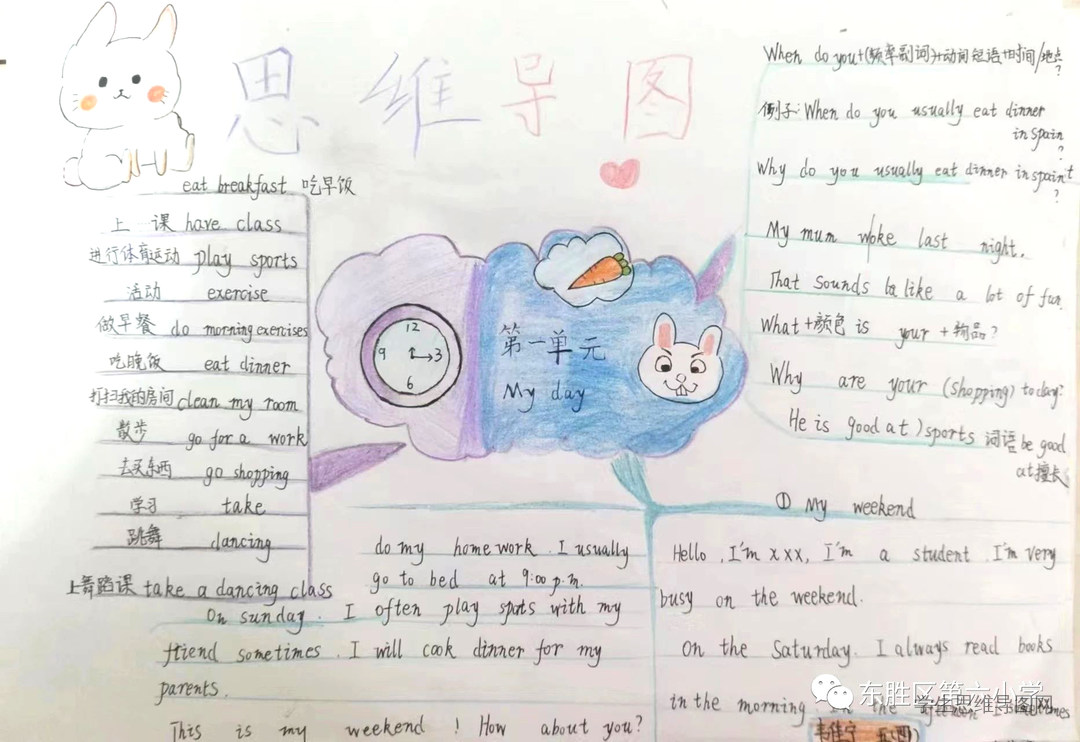 思维导图
eat breakfast 吃早饭
上课 have class
进行体育运动 play sports
活动 exercise
做早餐 do morning exercises
吃晚饭 eat dinner
打扫我的房间 clean my room
散步 go for a work
去买东西 go shopping
学习 take
跳舞 dancing
上舞蹈课 take a dancing class
12
9
3
6
第一单元
My day
When do you+(频率副词)+动词短语+时间/地点?
例子:When do you usually eat dinner
in spain
?
Why do you usually eat dinner in spain
?
My mum woke last night.
That sounds like a lot of fun.
What+颜色 is your +物品?
Why are your (shopping) today?
He is good at) sports 词语 be good
at 擅长
① My weekend
Hello, I'm xxx, I'm a student. I'm very
busy on the weekend.
On the Saturday. I always read books
in the morning in the
do my homework. I usually
go to bed at 9:00 p.m.
On sunday. I often play spots with my
ftiend sometimes. I will cook dinner for my
parents.
This is my weekend! How about you?
东胜区第六小学
学生思维导图网